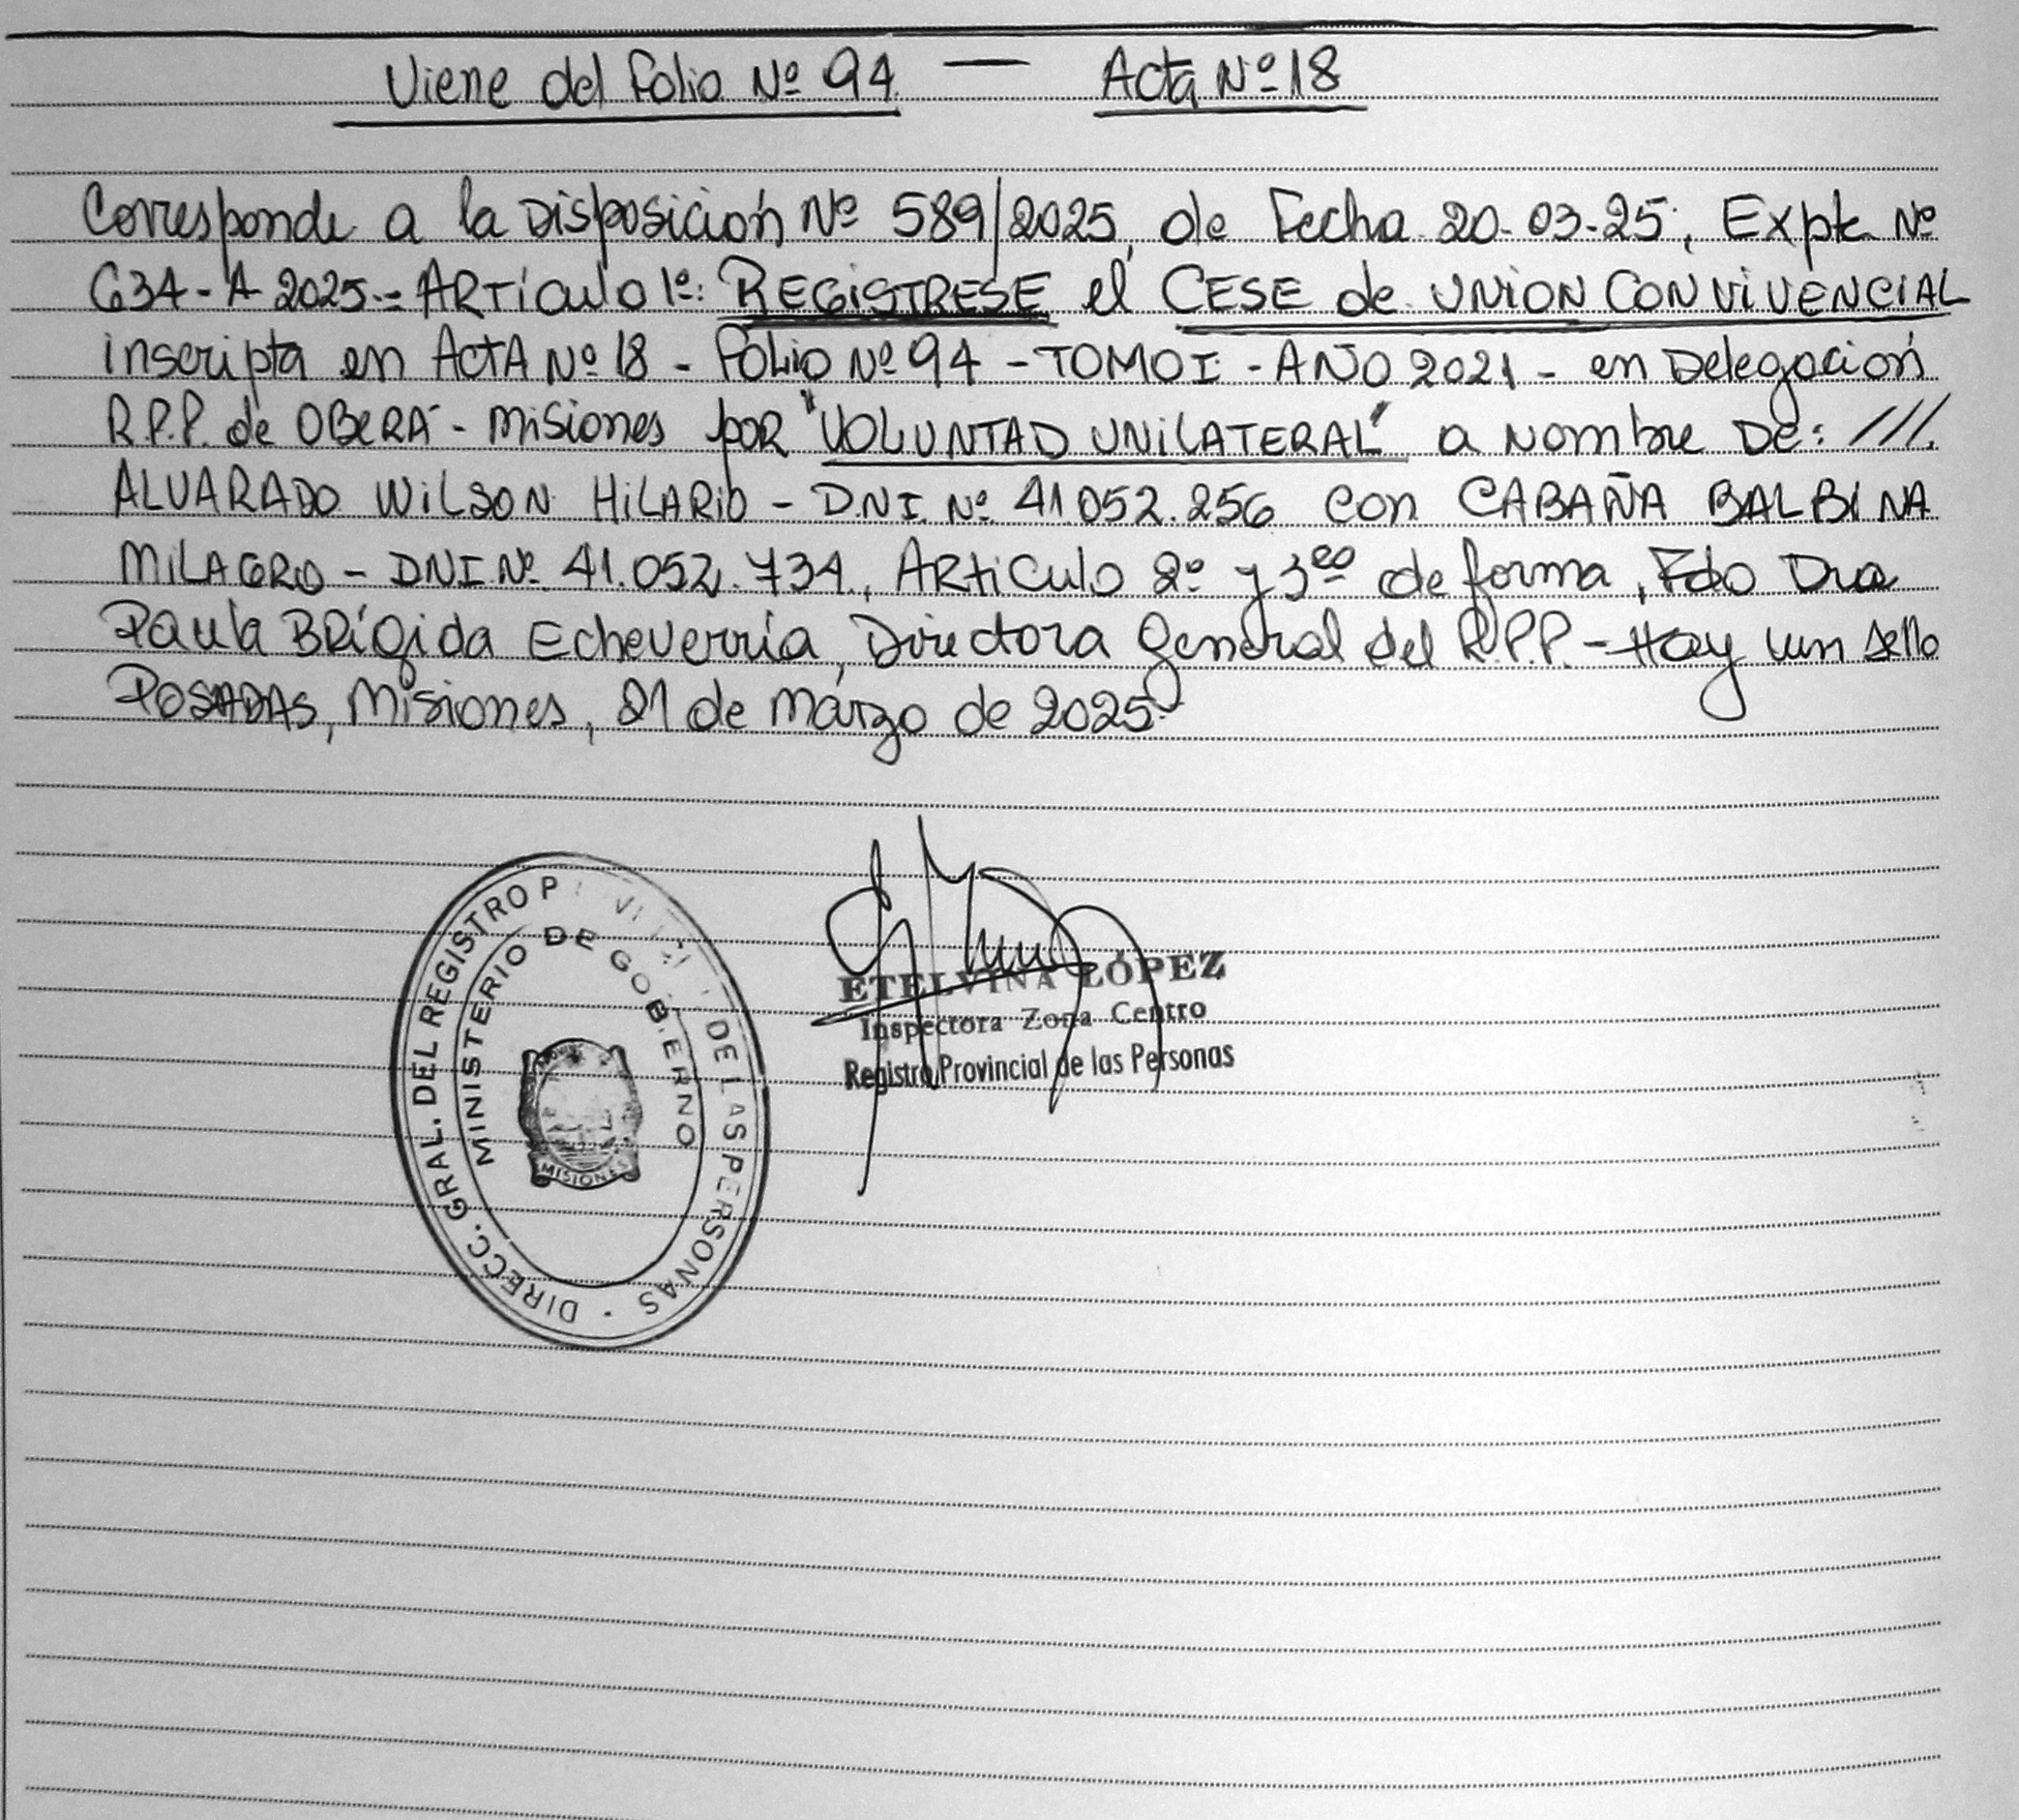 Viene del Folio Nº 94 — Acta Nº 18
Corresponde a la Disposición Nº 589/2025, de Fecha 20-03-25, Expte Nº
634-A 2025.- ARTículo 1º: REGISTRESE el CESE de UNION CONVIVENCIAL
inscripta en ActA Nº 18 - Folio Nº 94 - TOMO I - AÑO 2021 - en Delegación
R.P.P. de OBERÁ - Misiones por "VOLUNTAD UNILATERAL" a Nombre De: ///.
ALVARADO WILSON HILARIO - D.N.I. Nº 41.052.256 con CABAÑA BALBINA
MILAGRO - DNI Nº 41.052.734., ARtiCulo 2º y 3ero de forma, Fdo Dra
Paula Brígida Echeverría, Directora General del R.P.P. - Hay un sello
POSADAS, Misiones, 21 de Marzo de 2025-
DIRECC. GRAL. DEL REGISTRO P VI DE LAS PERSONAS ·
MINISTERIO DE GOBIERNO
MISIONES
ETELVINA LÓPEZ
Inspectora Zona Centro
Registro Provincial de las Personas